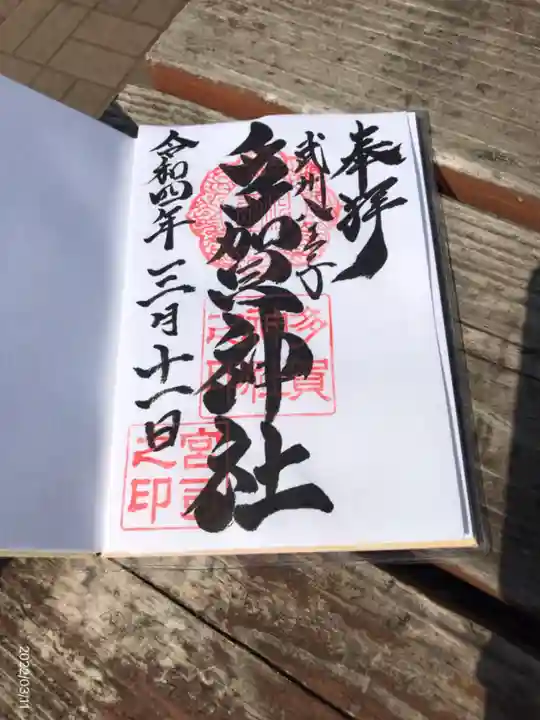 奉拝
武州八王子
多賀神社
令和四年三月十一日
多賀
神社
之印
宮司
之印
2022/03/11